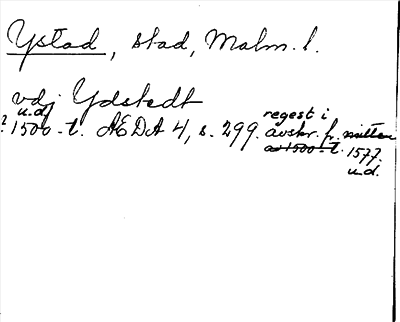 Ystad, stad, Malm. l.
vdj Ydstedt
u.d.
? 1500-t. AEDA 4, s. 299. regest i avskr. fr. mitten
av 1500-t. 1577.
u.d.